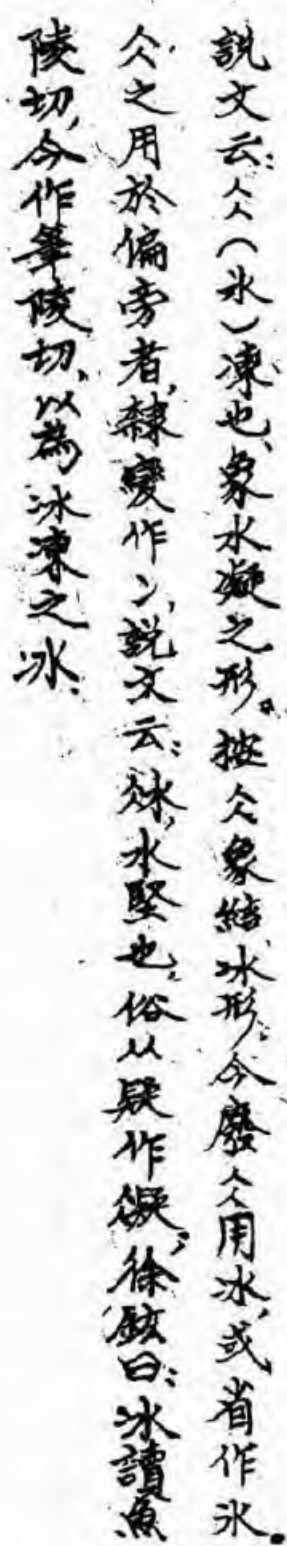 說文云:仌(氷)凍也、象水凝之形。按仌象結冰形、今廢仌用冰,或省作氷。
仌之用於偏旁者,隸變作冫,說文云:冰,水堅也,俗从疑作凝,徐鉉曰:冰讀魚
陵切,今作筆陵切,以為冰凍之冰.